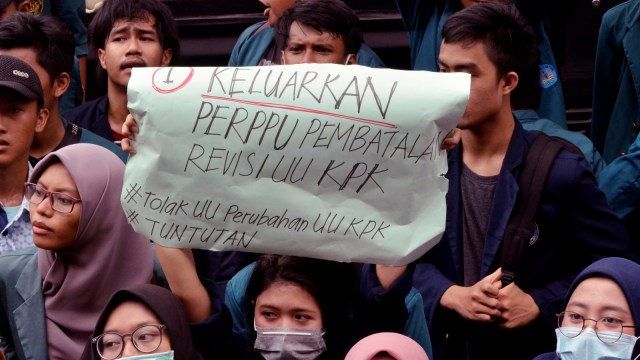 1 KELUARKAN
PERPPU PEMBATALAN
REVISI UU KPK
#Tolak UU Perubahan UU KPK
# TUNTUTAN